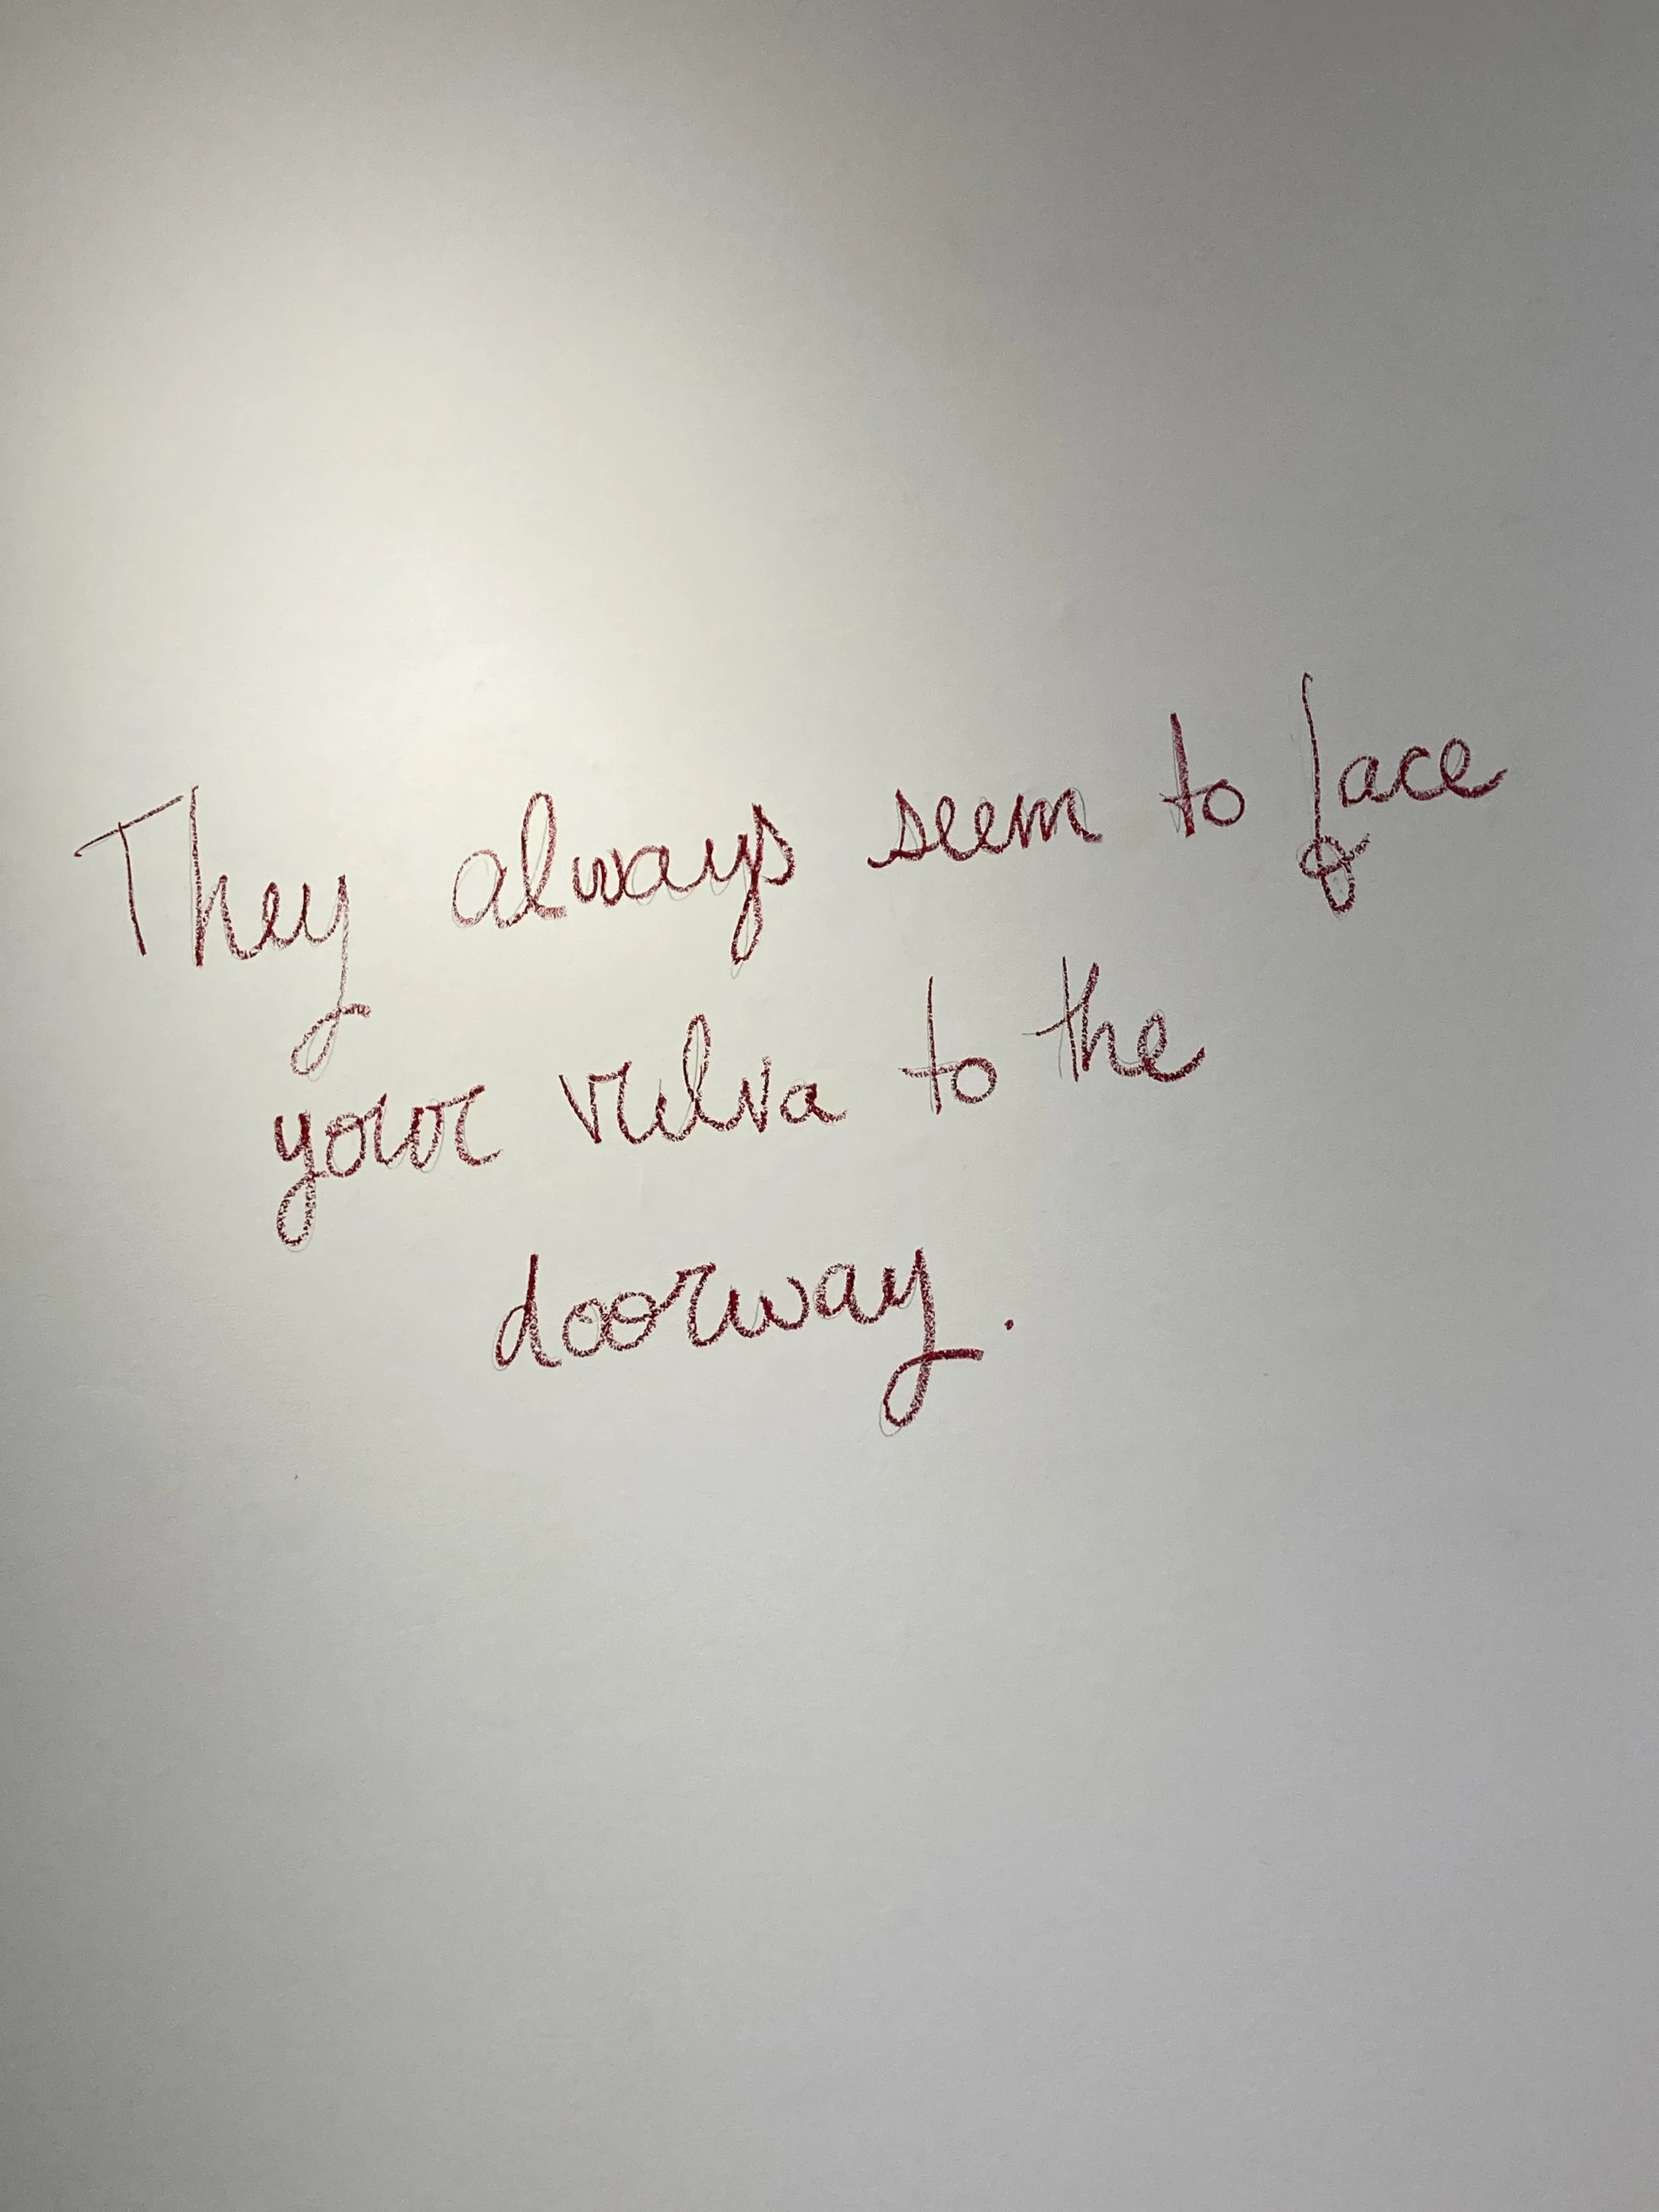 They always seem to face
your vulva to the
doorway.